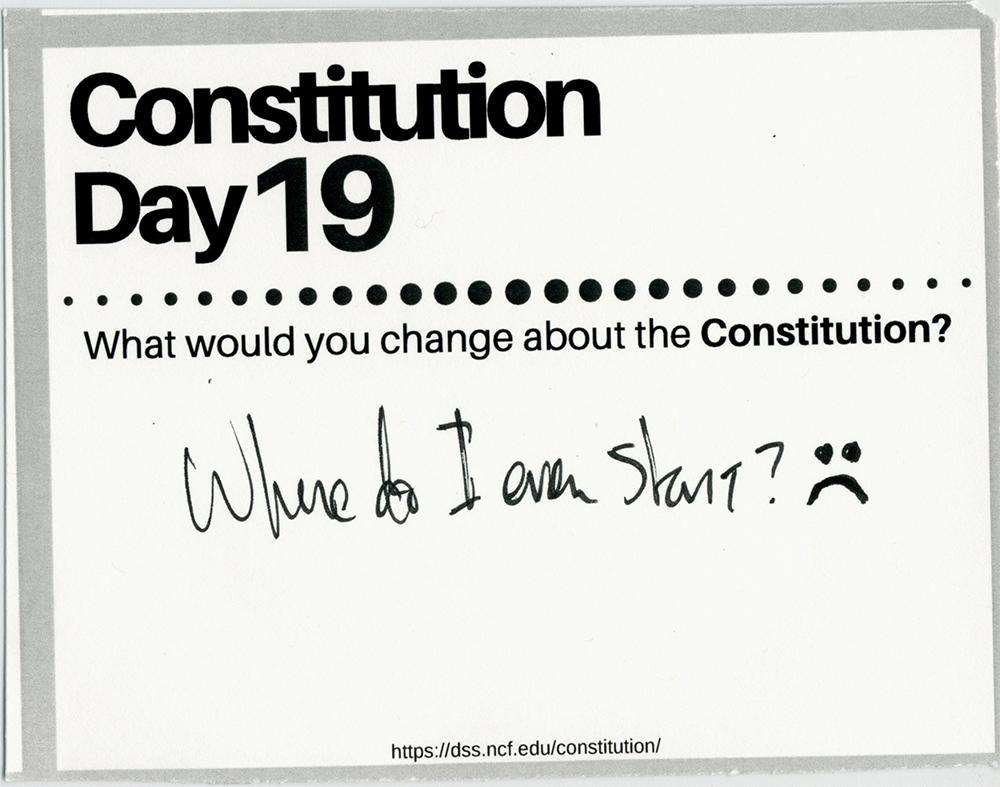 Constitution
Day 19
What would you change about the Constitution?
Where do I even start? :(
https://dss.ncf.edu/constitution/